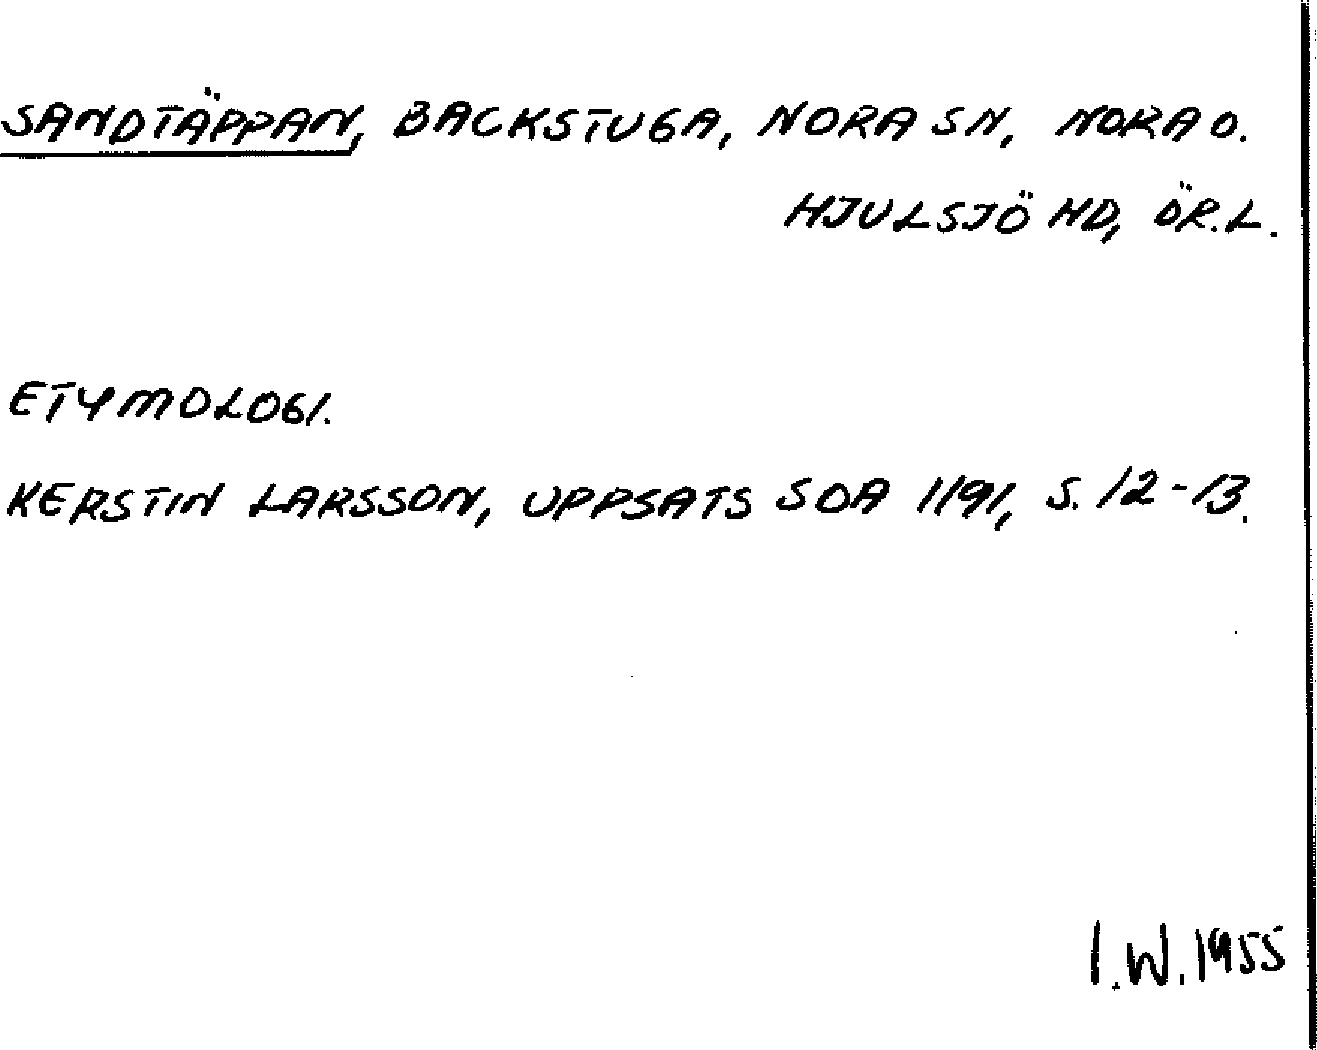 SANDTÄPPAN, BACKSTUGA, NORA SN, NORA O.
HJULSJÖ HD, ÖR.L.
ETYMOLOGI.
KERSTIN LARSSON, UPPSATS SOA 1191, S. 12-13.
I.W. 1955